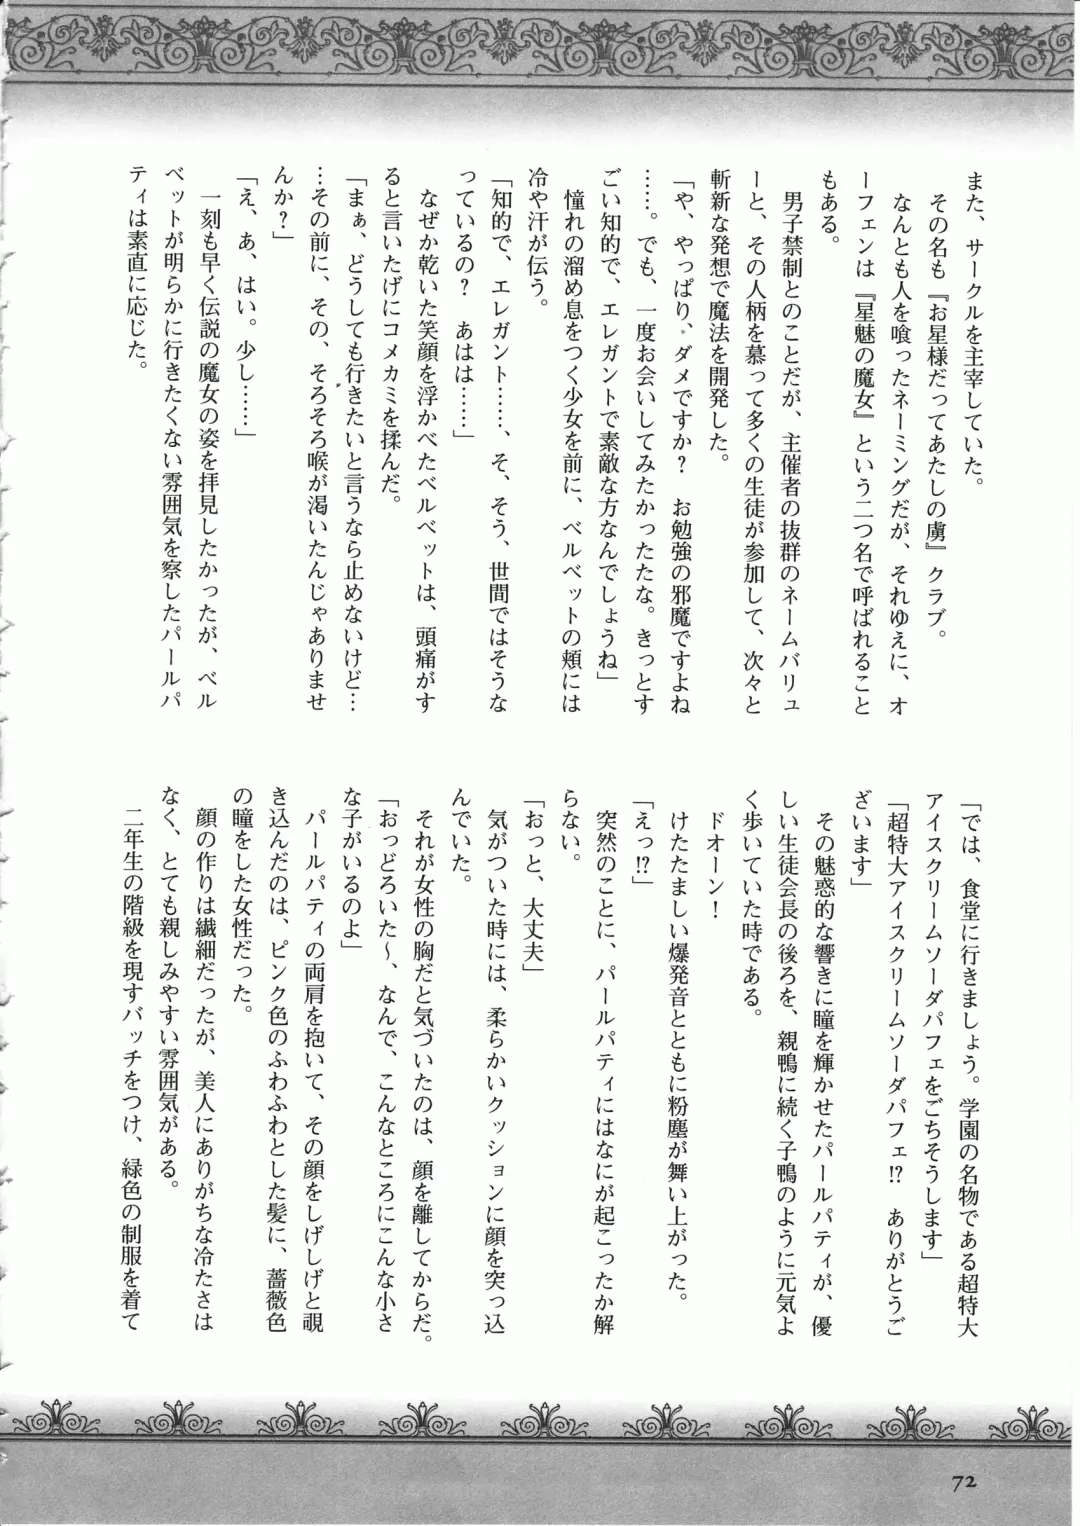 また、サークルを主宰していた。
その名も『お星様だってあたしの虜』クラブ。
なんとも人を喰ったネーミングだが、それゆえに、オ
ーフェンは『星魅の魔女』という二つ名で呼ばれること
もある。
男子禁制とのことだが、主催者の抜群のネームバリュ
ーと、その人柄を慕って多くの生徒が参加して、次々と
斬新な発想で魔法を開発した。
「や、やっぱり、ダメですか？　お勉強の邪魔ですよね
……。でも、一度お会いしてみたかったたな。きっとす
ごい知的で、エレガントで素敵な方なんでしょうね」
憧れの溜め息をつく少女を前に、ベルベットの頬には
冷や汗が伝う。
「知的で、エレガント……、そ、そう、世間ではそうな
っているの？　あはは……」
なぜか乾いた笑顔を浮かべたベルベットは、頭痛がす
ると言いたげにコメカミを揉んだ。
「まぁ、どうしても行きたいと言うなら止めないけど…
…その前に、その、そろそろ喉が渇いたんじゃありませ
んか？」
「え、あ、はい。少し……」
一刻も早く伝説の魔女の姿を拝見したかったが、ベル
ベットが明らかに行きたくない雰囲気を察したパールパ
ティは素直に応じた。
「では、食堂に行きましょう。学園の名物である超特大
アイスクリームソーダパフェをごちそうします」
「超特大アイスクリームソーダパフェ!?　ありがとうご
ざいます」
その魅惑的な響きに瞳を輝かせたパールパティが、優
しい生徒会長の後ろを、親鴨に続く子鴨のように元気よ
く歩いていた時である。
ドオーン！
けたたましい爆発音とともに粉塵が舞い上がった。
「えっ!?」
突然のことに、パールパティにはなにが起こったか解
らない。
「おっと、大丈夫」
気がついた時には、柔らかいクッションに顔を突っ込
んでいた。
それが女性の胸だと気づいたのは、顔を離してからだ。
「おっどろいた～、なんで、こんなところにこんな小さ
な子がいるのよ」
パールパティの両肩を抱いて、その顔をしげしげと覗
き込んだのは、ピンク色のふわふわとした髪に、薔薇色
の瞳をした女性だった。
顔の作りは繊細だったが、美人にありがちな冷たさは
なく、とても親しみやすい雰囲気がある。
二年生の階級を現すバッチをつけ、緑色の制服を着て
72